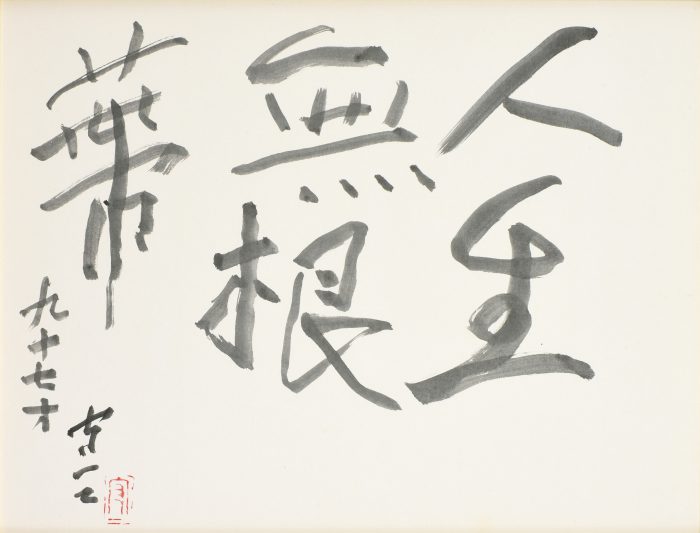 人生
無根
蔕
九十七才